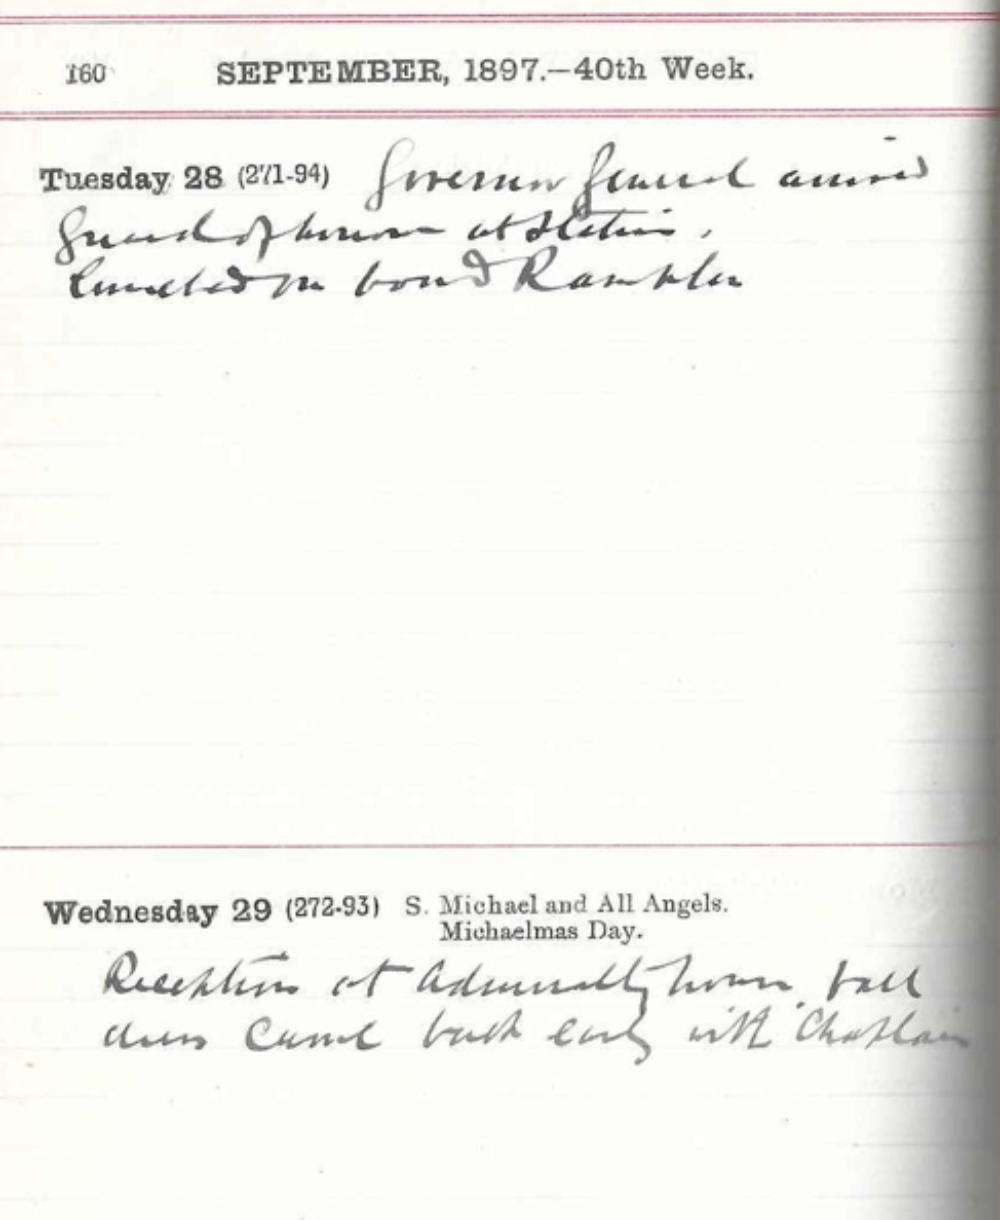 160 SEPTEMBER, 1897.—40th Week.
Tuesday 28 (271-94) Governor General arrived
Guard of honour at Station.
Lunched on board Rambler
Wednesday 29 (272-93) S. Michael and All Angels.
Michaelmas Day.
Reception at Admiralty house. ball
dress Came back early with Chaplain